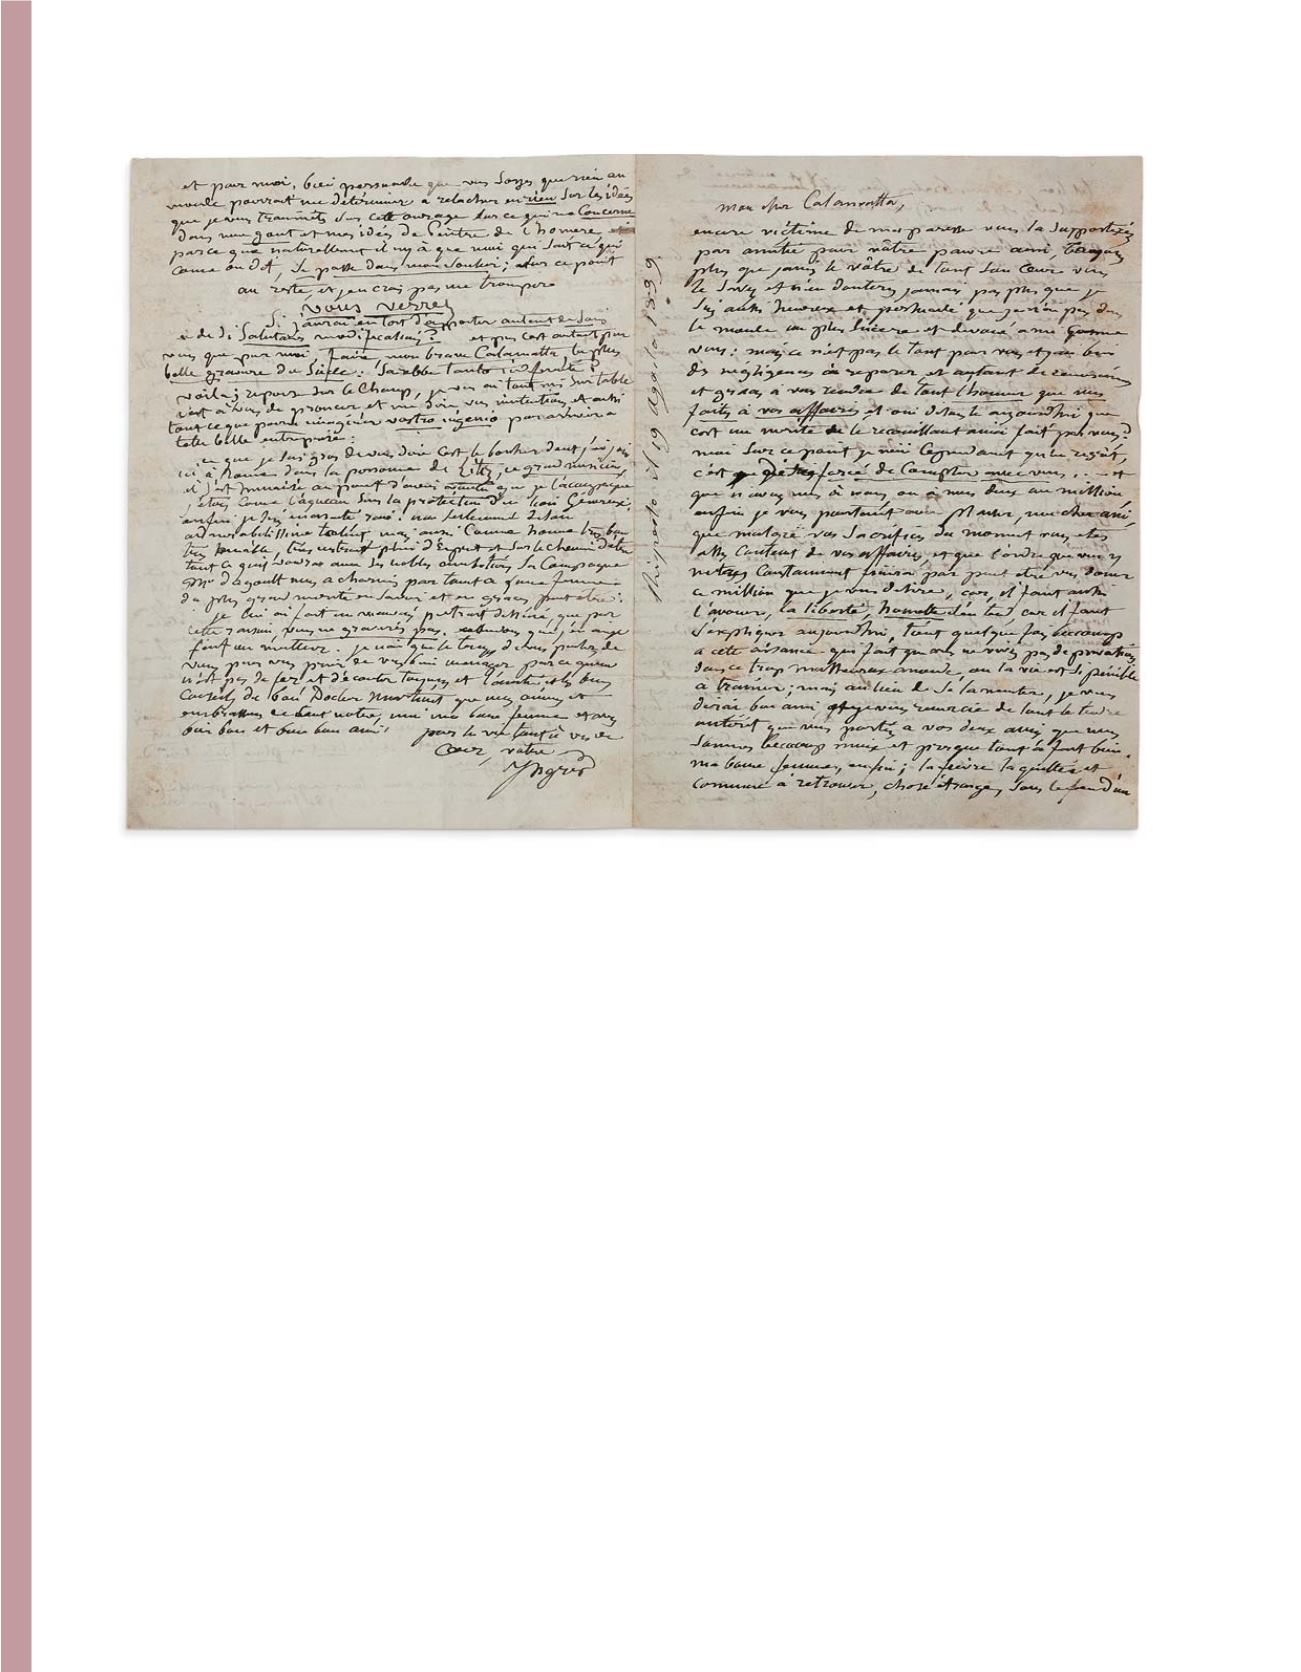 et pour moi, bien persuadé que vous soyez que rien au
monde pourrait me déterminer a relacher en rien sur les idées
que je vous transmets sur cette ouvrage sur ce qui me Concerne
dans mon gout et mes idées de Peintre de l'homere
parce que naturellement il n'y à que moi qui sait ce qui
come on dit, se passe dans mon soulier; sur ce point
au reste, et je crois pas me trompere
vous verrez
Si j'aurai eu tort d'apporter autant de
e de di Salutares modifications? et puis cest autant pour
vous que pour moi, faire, mon brave Calamatta la plus
belle gravure du Siecle: Sarebbe tanto indifferente?
voila; repons sur le Champ,
c'est à vous de prononcer et me dire vos intentions et aussi
tout ce que pourra imaginer vostro ingenio pour arriver a
telle belle entreprise:
ce que je suis gros de vous dire cest le bonheur dont j'ai joui
ici à Rome dans la personne de Litz, ce grand musicien,
il s'est humanisé au point d'avoir que je l'accompagne
j'étais Come l'agneau sur la protection du lion Généreux,
enfin je suis non seulement de son
admirabilissime talent mais aussi Comme homme très bon
très aimable, très instruit plein d'Esprit et sur le chemin d'etre
tout ce qu'il voudra avec ses nobles ambitions Sa Compagne
Me d'agoult nous a charmés par tout ce q'une femme
du plus grand merite en savoir et en graces peut etre:
je lui ai fait un mauvais portrait dessiné, que par
cette raison, vous ne graverés pas.
fait un meilleur. je n'ai que le temps de vous parler de
vous pour vous prier de vous bien menager parce quon
n'est pas de fer et d'ecouter toujours et l'amitié et les bons
Conseils du bon Docteur Martinet que nous aimons et
embrassons de tout notre, moi ma bone femme et vous
bien bon et bien bon ami! pour la vie tout à vous de
Coeur, votre
Ingres
Risposto il 19 Agosto 1839
mon cher Calamatta,
encore victime de ma paresse vous la supporterez
par amitié pour vôtre pauvre ami,
plus que jamais le vôtre de tout son Coeur vous
le savez et n'en douterez jamais pas plus que je
suis aussi heureux et persuadé que je n'ai pas dans
le monde un plus sincere et devoué ami Comme
vous: mais ce n'est pas le tout pour vous et j'ai bien
des négligences à reparer et autant de
et graces à vous rendre de tout l'honneur que vous
faites à vos affaires et oui
cest un merite de le recueillant ainsi fait par vous?
moi sur ce point je n'ai Cependant qu'un regret,
c'est que d'être forcé de Compter avec vous. et
que n'avez nous à vous ou à nous deux un million
enfin je vois pourtant avec Plaisir, mon cher ami,
que malgré vos Sacrifices du moment vous etes
assez Content de vos affaires, et que l'ordre que vous y
mettez Constamment finira par peut etre vous donner
ce million que je vous desire, car, il faut aussi
l'avouer, la liberté, car il faut
s'expliquer aujourdhui, tient quelque fois beaucoup
a cete aisance qui fait que on ne vive pas de privations
dans ce trop malheureux monde, ou la vie est si penible
a trainer; mais au lieu de se lamenter, je vous
dirai bon ami que je vous remercie de tout le tendre
interet que vous portés a vos deux amis que nous
Sommes beaucoup mieux et presque tout à fait bien.
ma bonne femme, enfin; la fievre la quittée et
commence à retrouver, chose étrange, sous le feu d'un